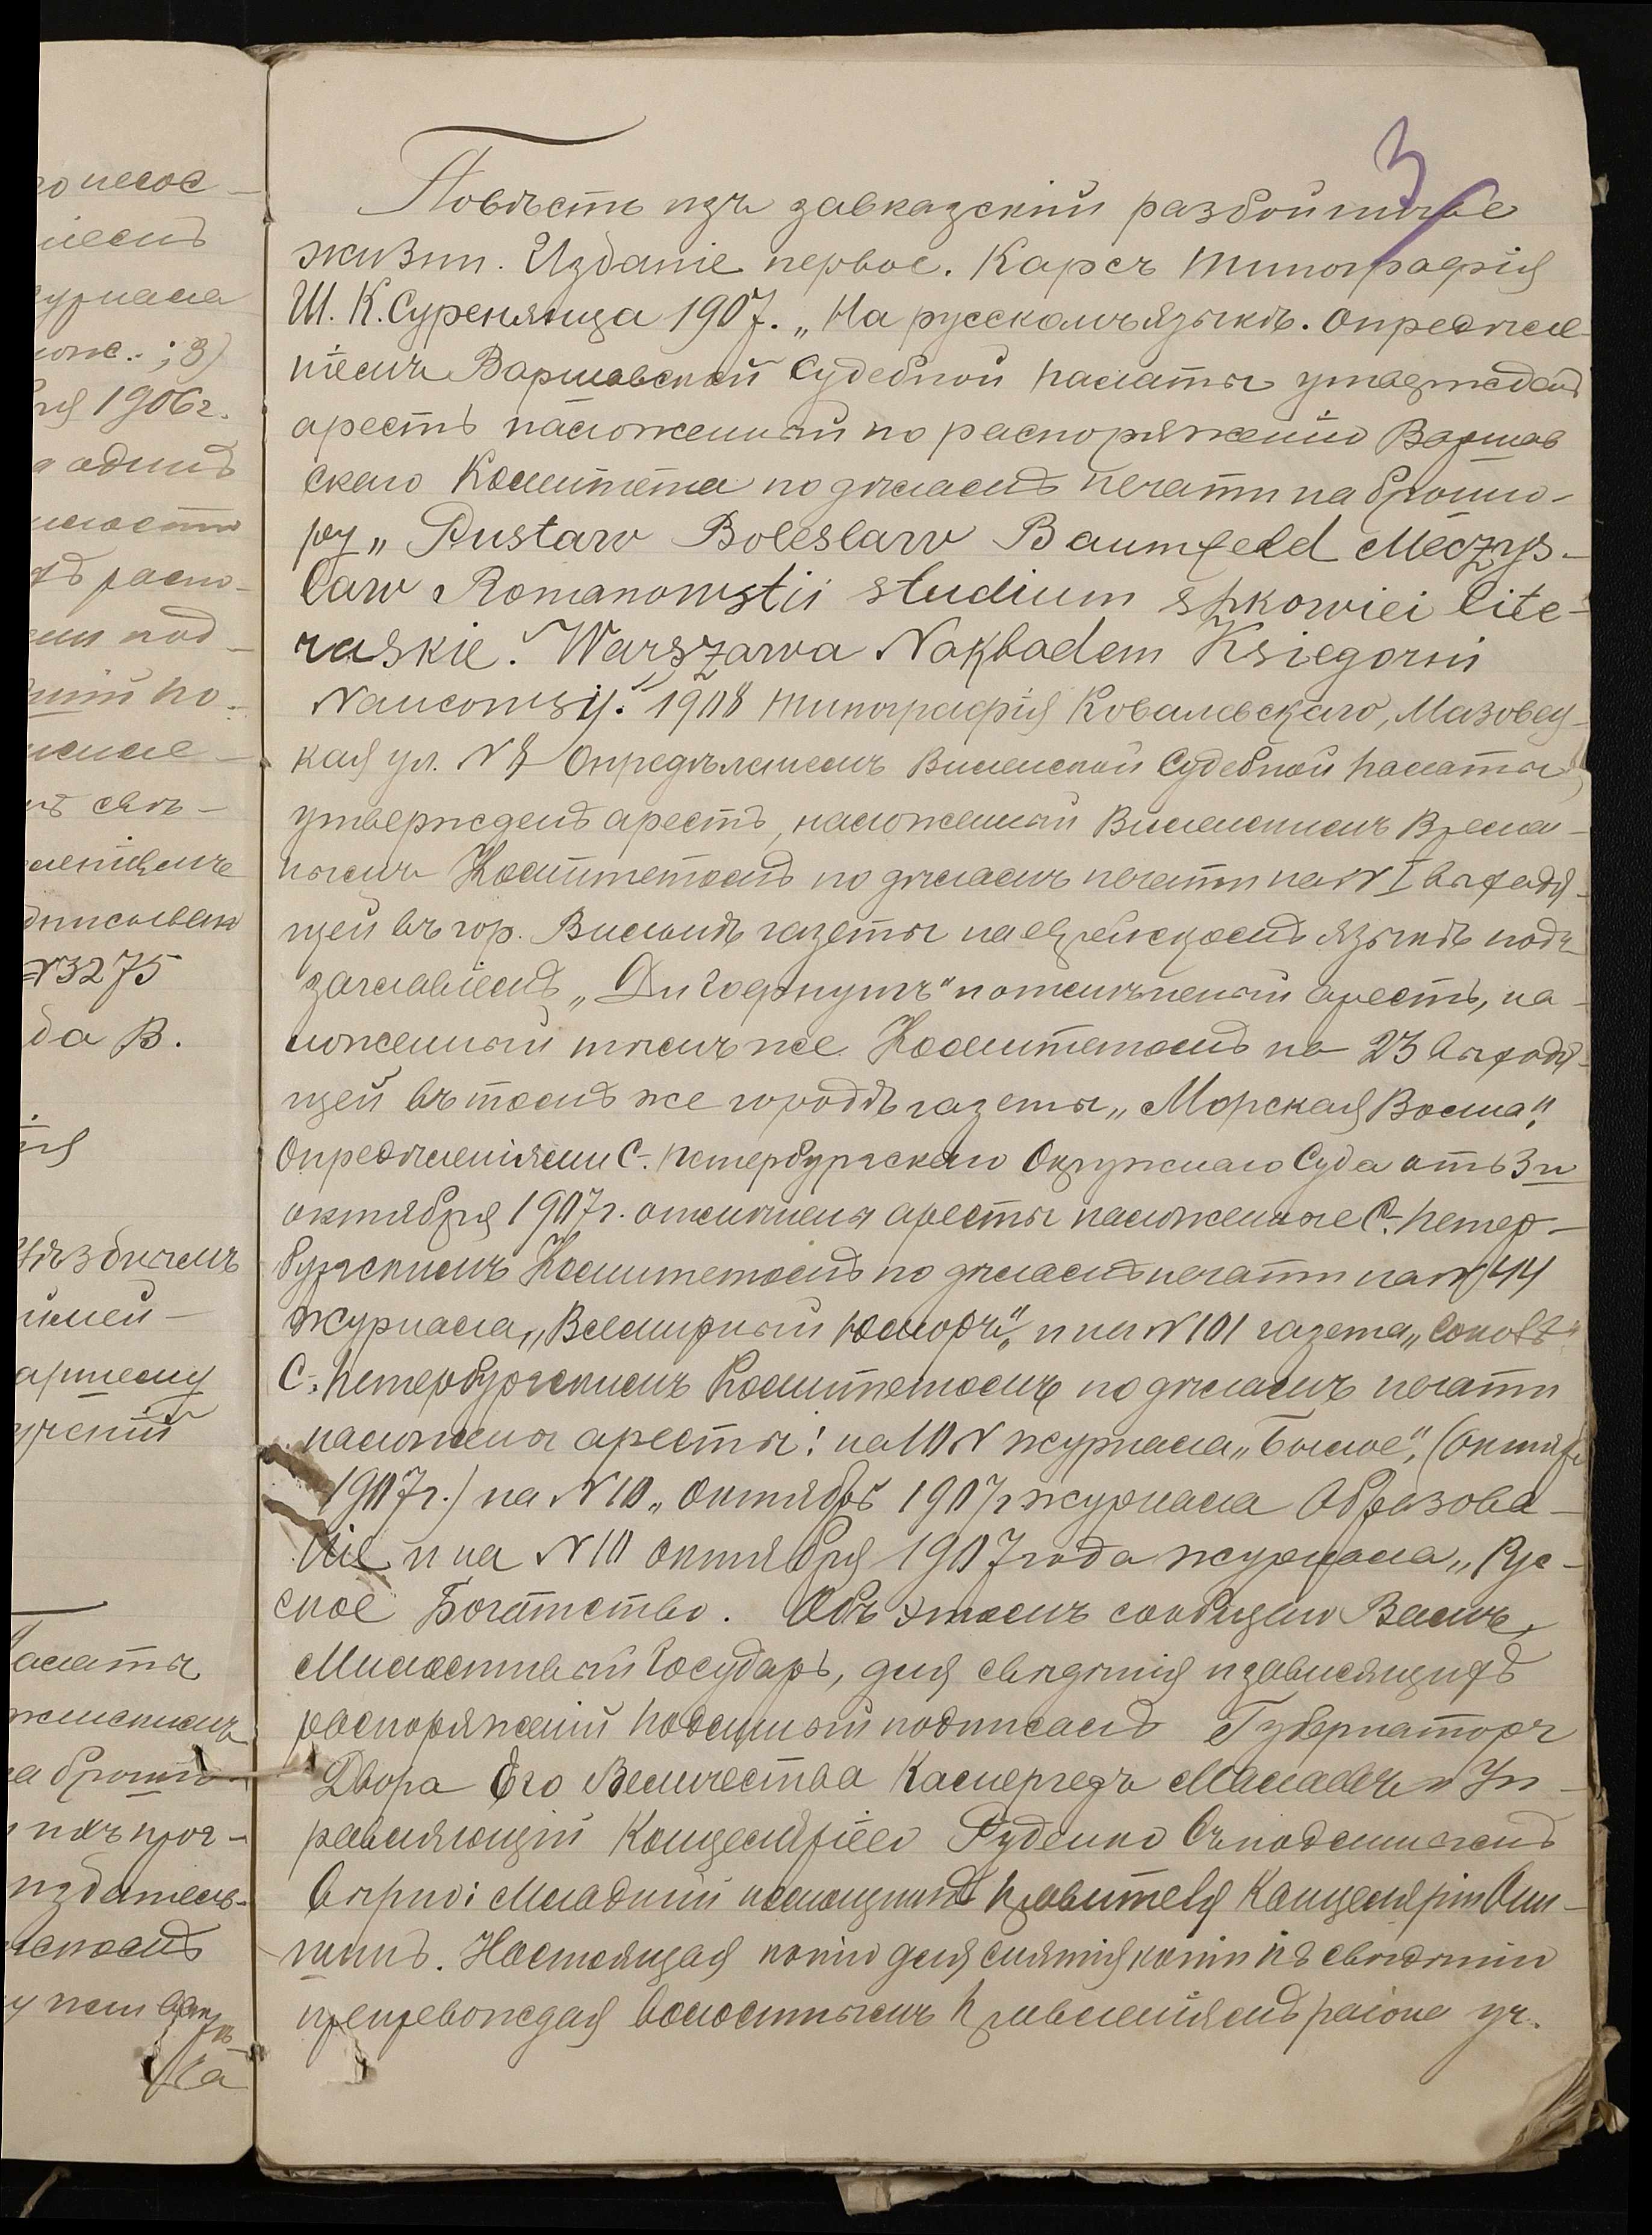 3
Повѣсть изъ завказскій разбойничье
жизни. Изданіе первое. Карсъ типографія
Ш. К. Суренянца 1907. „На русскомъ языкѣ. Опредѣле-
ніемъ Варшавской Судебной палаты утвержденъ
арестъ наложенный по распоряженію Варшав
скаго Комитета по дѣламъ печати на брошю-
ру „Gustaw Boleslaw Baumfeld Mieczys-
law Romanowstii studium shkowiei lite-
raskie. Warszawa Nakladem Ksiegorni
Naucowsij." 1908 типографія Ковалевскаго, Мазовец-
кая ул. N 8 Опредѣленіемъ Виленской Судебной палаты
утвержденъ арестъ, наложенный Виленскимъ Времен-
нымъ Комитетомъ по дѣламъ печати на N I выходя-
щей въ гор. Вильнѣ газеты на еврейскомъ языкѣ подъ
заглавіемъ „Ди Гофнунгъ" и отмѣненъ арестъ, на-
ложенный тѣмъ же Комитетомъ на 23 выходя-
щей въ томъ же городѣ газеты „Морская Волна".
Опредѣленіями С.-Петербургскаго Окружнаго Суда отъ 3 и
октября 1907 г. отмѣнены аресты наложенные С.-Петер-
бургскимъ Комитетомъ по дѣламъ печати на N 44
журнала „Всемирный Юморъ", и на N 101 газета „Соколъ"
С.-Петербургскимъ Комитетомъ по дѣламъ печати
наложены аресты: на 10 N журнала „Былое", (Октябрь
1907 г.) на N 10 „Октябрь 1907 г журнала Образова-
ніе и на N 10 октября 1907 года журнала „Рус-
ское Богатство. Объ этомъ сообщаю Вамъ,
Милостивый Государь, для свѣдѣнія и зависящихъ
распоряженій подлинный подписалъ Губернаторъ
Двора Его Величества Камергеръ Мамаевъ и Уп-
равляющій Канцеляріею Руденко Съ подлиннымъ
вѣрно: Младшій помощникъ Правителя Канцеляріи
Настоящая копію для снятія копіи къ свѣдѣнію
препревождая волостнымъ Правленіямъ раіона уч.